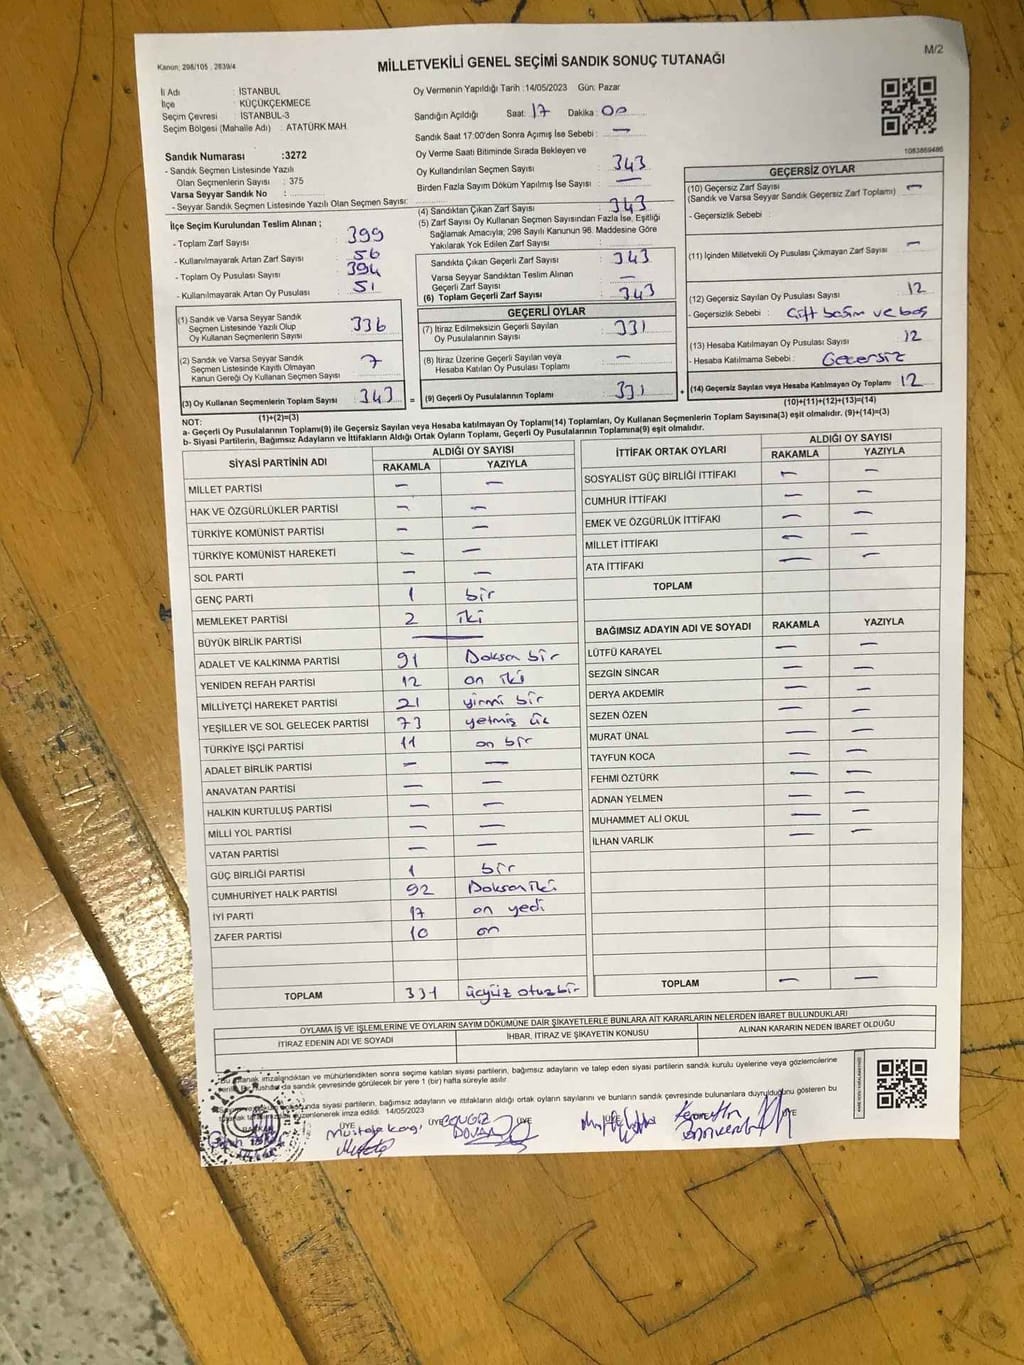 Kanun: 298/105 , 2839/4
M/2
MİLLETVEKİLİ GENEL SEÇİMİ SANDIK SONUÇ TUTANAĞI
İl Adı : İSTANBUL
İlçe : KÜÇÜKÇEKMECE
Seçim Çevresi : İSTANBUL-3
Seçim Bölgesi (Mahalle Adı) : ATATÜRK MAH.
Sandık Numarası :3272
- Sandık Seçmen Listesinde Yazılı
Olan Seçmenlerin Sayısı : 375
Varsa Seyyar Sandık No :
- Seyyar Sandık Seçmen Listesinde Yazılı Olan Seçmen Sayısı:
İlçe Seçim Kurulundan Teslim Alınan ;
- Toplam Zarf Sayısı : 399
- Kullanılmayarak Artan Zarf Sayısı : 56
- Toplam Oy Pusulası Sayısı : 394
- Kullanılmayarak Artan Oy Pusulası : 51
(1) Sandık ve Varsa Seyyar Sandık
Seçmen Listesinde Yazılı Olup
Oy Kullanan Seçmenlerin Sayısı : 336
(2) Sandık ve Varsa Seyyar Sandık
Seçmen Listesinde Kayıtlı Olmayan
Kanun Gereği Oy Kullanan Seçmen Sayısı : 7
(3) Oy Kullanan Seçmenlerin Toplam Sayısı : 343
(1)+(2)=(3)
Oy Vermenin Yapıldığı Tarih :14/05/2023 Gün: Pazar
Sandığın Açıldığı Saat: 17 Dakika: 00
Sandık Saat 17:00'den Sonra Açımış İse Sebebi : —
Oy Verme Saati Bitiminde Sırada Bekleyen ve
Oy Kullandırılan Seçmen Sayısı : 343
Birden Fazla Sayım Döküm Yapılmış İse Sayısı : —
(4) Sandıktan Çıkan Zarf Sayısı : 343
(5) Zarf Sayısı Oy Kullanan Seçmen Sayısından Fazla İse, Eşitliği
Sağlamak Amacıyla; 298 Sayılı Kanunun 98. Maddesine Göre
Yakılarak Yok Edilen Zarf Sayısı :
Sandıkta Çıkan Geçerli Zarf Sayısı : 343
Varsa Seyyar Sandıktan Teslim Alınan
Geçerli Zarf Sayısı : —
(6) Toplam Geçerli Zarf Sayısı : 343
GEÇERLİ OYLAR
(7) İtiraz Edilmeksizin Geçerli Sayılan
Oy Pusulalarının Sayısı : 331
(8) İtiraz Üzerine Geçerli Sayılan veya
Hesaba Katılan Oy Pusulası Toplamı : —
= (9) Geçerli Oy Pusulalarının Toplamı : 331
1083869486
GEÇERSİZ OYLAR
(10) Geçersiz Zarf Sayısı : —
(Sandık ve Varsa Seyyar Sandık Geçersiz Zarf Toplamı)
- Geçersizlik Sebebi :
(11) İçinden Milletvekili Oy Pusulası Çıkmayan Zarf Sayısı : —
(12) Geçersiz Sayılan Oy Pusulası Sayısı : 12
- Geçersizlik Sebebi : Çift basım ve boş
(13) Hesaba Katılmayan Oy Pusulası Sayısı : 12
- Hesaba Katılmama Sebebi : Geçersiz
+ (14) Geçersiz Sayılan veya Hesaba Katılmayan Oy Toplamı : 12
(10)+(11)+(12)+(13)=(14)
NOT:
a- Geçerli Oy Pusulalarının Toplamı(9) ile Geçersiz Sayılan veya Hesaba katılmayan Oy Toplamı(14) Toplamları, Oy Kullanan Seçmenlerin Toplam Sayısına(3) eşit olmalıdır. (9)+(14)=(3)
b- Siyasi Partilerin, Bağımsız Adayların ve İttifakların Aldığı Ortak Oyların Toplamı, Geçerli Oy Pusulalarının Toplamına(9) eşit olmalıdır.
SİYASİ PARTİNİN ADI ALDIĞI OY SAYISI
RAKAMLA YAZIYLA
MİLLET PARTİSİ — —
HAK VE ÖZGÜRLÜKLER PARTİSİ — —
TÜRKİYE KOMÜNİST PARTİSİ — —
TÜRKİYE KOMÜNİST HAREKETİ — —
SOL PARTİ — —
GENÇ PARTİ 1 bir
MEMLEKET PARTİSİ 2 iki
BÜYÜK BİRLİK PARTİSİ —
ADALET VE KALKINMA PARTİSİ 91 Doksan bir
YENİDEN REFAH PARTİSİ 12 on iki
MİLLİYETÇİ HAREKET PARTİSİ 21 yirmi bir
YEŞİLLER VE SOL GELECEK PARTİSİ 73 yetmiş üç
TÜRKİYE İŞÇİ PARTİSİ 11 on bir
ADALET BİRLİK PARTİSİ — —
ANAVATAN PARTİSİ — —
HALKIN KURTULUŞ PARTİSİ — —
MİLLİ YOL PARTİSİ — —
VATAN PARTİSİ — —
GÜÇ BİRLİĞİ PARTİSİ 1 bir
CUMHURİYET HALK PARTİSİ 92 Doksan iki
İYİ PARTİ 17 on yedi
ZAFER PARTİSİ 10 on
TOPLAM 331 üçyüz otuz bir
İTTİFAK ORTAK OYLARI ALDIĞI OY SAYISI
RAKAMLA YAZIYLA
SOSYALİST GÜÇ BİRLİĞİ İTTİFAKI — —
CUMHUR İTTİFAKI — —
EMEK VE ÖZGÜRLÜK İTTİFAKI — —
MİLLET İTTİFAKI — —
ATA İTTİFAKI — —
TOPLAM
BAĞIMSIZ ADAYIN ADI VE SOYADI RAKAMLA YAZIYLA
LÜTFÜ KARAYEL — —
SEZGİN SİNCAR — —
DERYA AKDEMİR — —
SEZEN ÖZEN — —
MURAT ÜNAL — —
TAYFUN KOCA — —
FEHMİ ÖZTÜRK — —
ADNAN YELMEN — —
MUHAMMET ALİ OKUL — —
İLHAN VARLIK — —
TOPLAM — —
OYLAMA İŞ VE İŞLEMLERİNE VE OYLARIN SAYIM DÖKÜMÜNE DAİR ŞİKAYETLERLE BUNLARA AİT KARARLARIN NELERDEN İBARET BULUNDUKLARI
İTİRAZ EDENİN ADI VE SOYADI İHBAR, İTİRAZ VE ŞİKAYETİN KONUSU ALINAN KARARIN NEDEN İBARET OLDUĞU
Bu tutanak imzalandıktan ve mühürlendikten sonra seçime katılan siyasi partilerin, bağımsız adayların ve talep eden siyasi partilerin sandık kurulu üyelerine veya gözlemcilerine
da sandık çevresinde görülecek bir yere 1 (bir) hafta süreyle asılır
sonunda siyasi partilerin, bağımsız adayların ve ittifakların aldığı ortak oyların sayılarını ve bunların sandık çevresinde bulunanlara duyrulduğunu gösteren bu
düzenlenerek imza edildi. 14/05/2023
ÜYE ÜYE ÜYE ÜYE ÜYE
Mustafa CENGİZ
DOĞAN